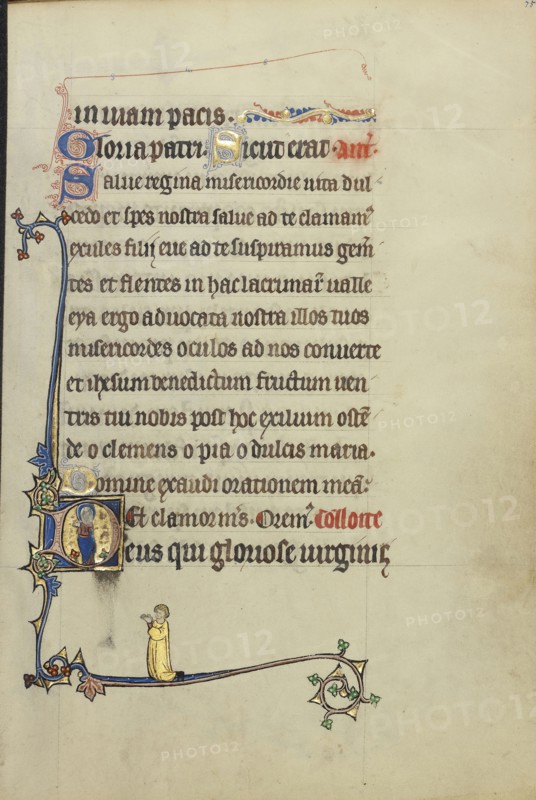 75
in uiam pacis.
Gloria patri. Sicut erat. añt.
Salue regina misericordie uita dul
cedo et spes nostra salue ad te clamam⁹
exules filij eue ad te suspiramus gem̄
tes et flentes in hac lacrimar̄ ualle
eya ergo aduocata nostra illos tuos
misericordes oculos ad nos conuerte
et ihesum benedictum fructum uen
tris tui nobis post hoc exilium ostē
de o clemens o pia o dulcis maria.
Domine exaudi orationem meā:
Et clamor m̄s. Orem⁹. Collecte
Deus qui gloriose uirginis
PHOTO12